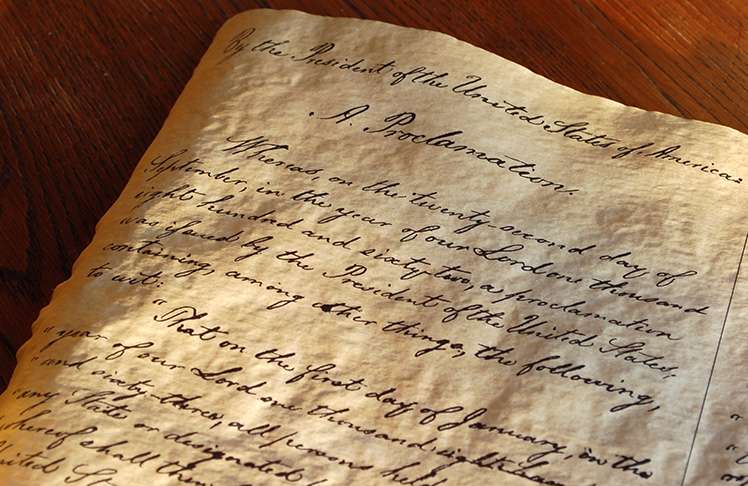 By the President of the United States of America:
A Proclamation.
Whereas, on the twenty-second day of
September, in the year of our Lord one thousand
eight hundred and sixty-two, a proclamation
was issued by the President of the United States,
containing, among other things, the following,
to wit:
"That on the first day of January, in the
"year of our Lord one thousand eight hundred
"and sixty-three, all persons held
"any State or designated
thereof shall then
United St